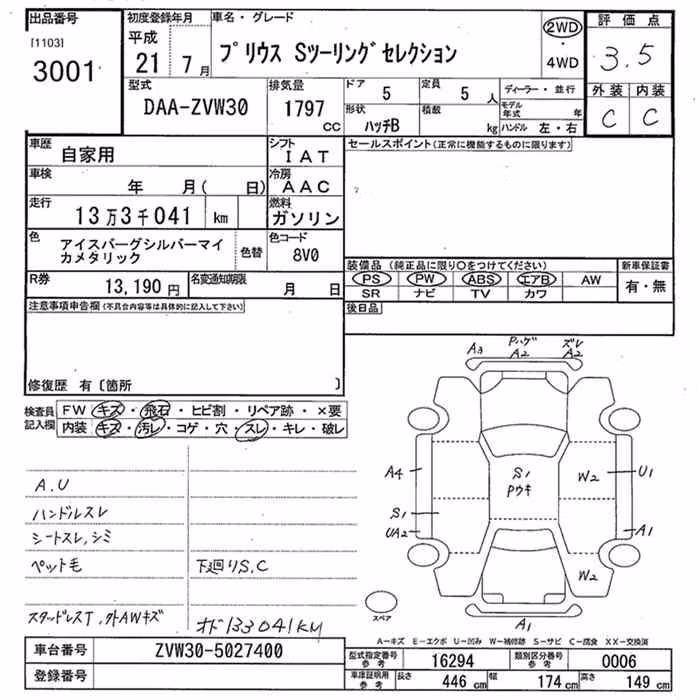 出品番号
[1103]
3001
初度登録年月
平成
21年 7月
車名・グレード
プリウス Sツーリングセレクション
2WD
・
4WD
評価点
3.5
外装 内装
C C
型式
DAA-ZVW30
排気量
1797
CC
ドア
5
定員
5 人
形状
ハッチB
積載
kg
ディーラー・並行
モデル年式 年
ハンドル 左・右
車歴
自家用
シフト
IAT
車検
年 月( 日)
冷房
AAC
走行
13万3千041 km
燃料
ガソリン
色
アイスバーグシルバーマイ
カメタリック
色替
色コード
8V0
R券
13,190円
名変通知期限
月 日
セールスポイント(正常に機能するものに限ります)
装備品 (純正品に限り○をつけてください)
新車保証書
PS PW ABS エアB AW
SR ナビ TV カワ
有・無
後日品
注意事項申告欄(不具合内容等は具体的に記入して下さい)
修復歴 有〔箇所 〕
検査員
記入欄
FW キズ・飛石・ヒビ割・リペア跡・×要
内装 キズ・汚レ・コゲ・穴・スレ・キレ・破レ
A.U
ハンドルスレ
シートスレ,シミ
ペット毛
下廻りS,C
スタッドレスT,外AWキズ
オド133041KM
A3
Pハゲ
A2
ズレ
A2
A4
S1
UA2
S1
Pウキ
W2
U1
A1
W2
A1
スペア
A―キズ E―エクボ U―凹み W―補修跡 S―サビ C―腐食 XX―交換済
車台番号
ZVW30-5027400
登録番号
型式指定番号
参考
16294
類別区分番号
参考
0006
車庫証明用
参考
長さ
446 cm
幅
174 cm
高さ
149 cm